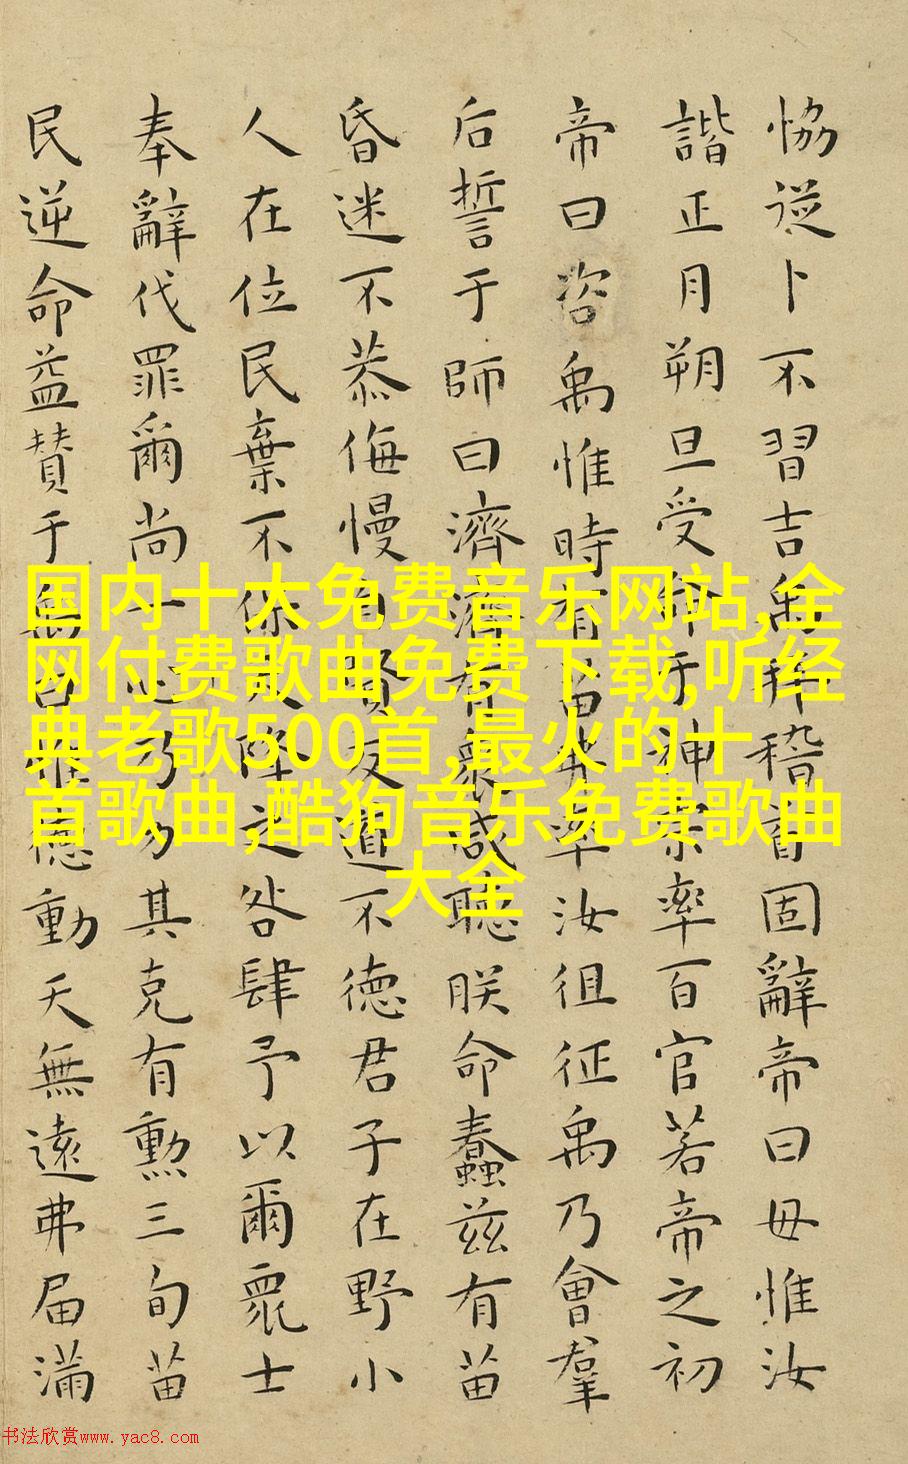 恊從卜不習吉禹拜稽首固辭帝曰毋惟汝
諧正月朔旦受命于神宗率百官若帝之初
帝曰咨禹惟時有苗弗率汝徂征禹乃會羣
后誓于師曰濟濟有衆咸聽朕命蠢兹有苗
昏迷不恭侮慢自賢反道不徳君子在野小
人在位民棄不保天降之咎肆予以爾衆士
奉辭伐罪爾尚一心乃力其克有勲三旬苗
民逆命益贊于禹曰惟徳動天無遠弗届滿
国内十大免费音乐网站,全
网付费歌曲免费下载,听经
典老歌500首,最火的十
首歌曲,酷狗音乐免费歌曲
大全
书法欣赏www.yac8.com